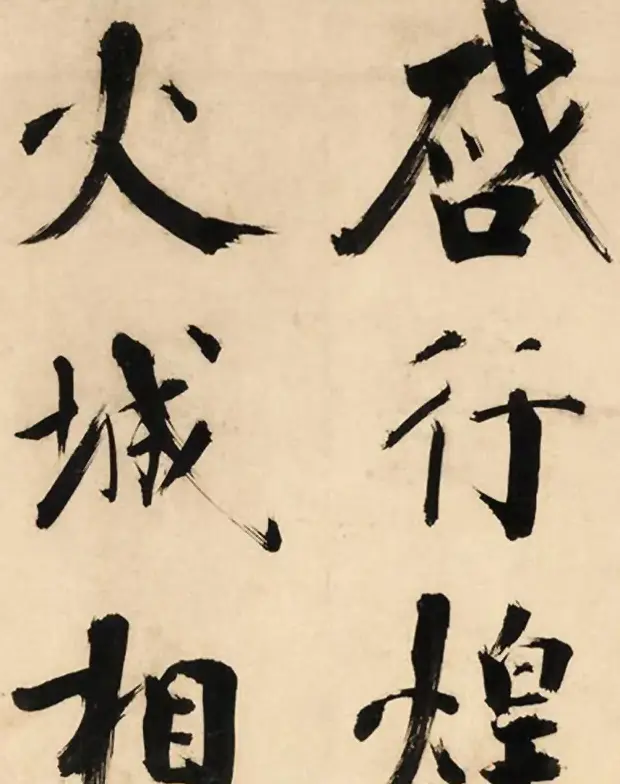 啓行煌
火城相